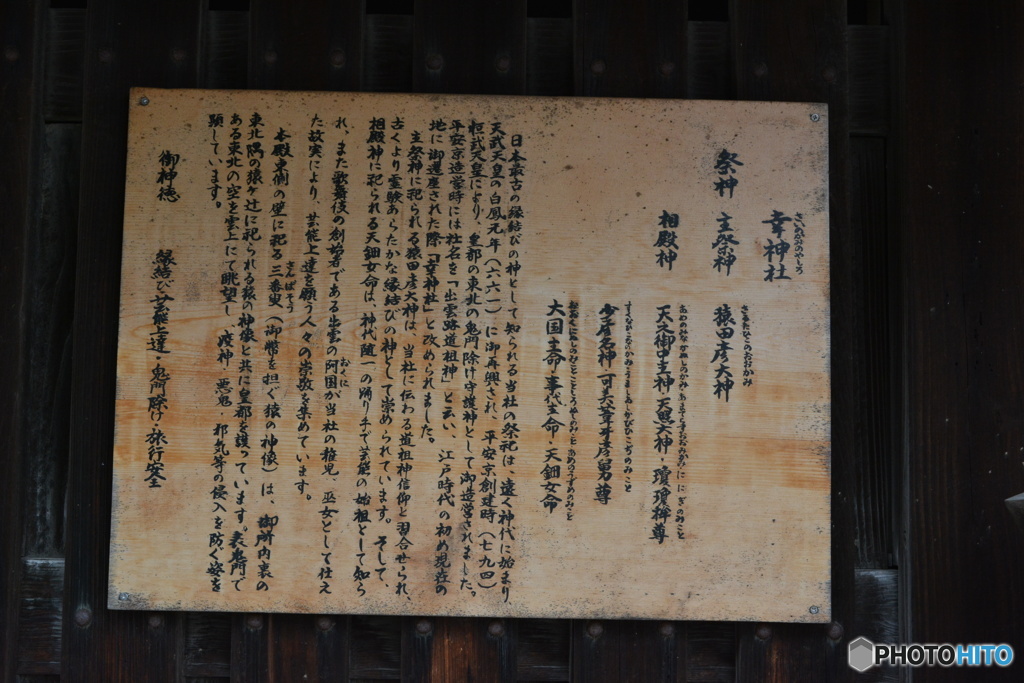 幸神社
さいのかみのやしろ
祭神 主祭神 猿田彦大神
さるたひこのおおかみ
相殿神 天之御中主神・天照大神・瓊瓊杵尊
少彦名神・可美葦牙彦舅尊
大国主命・事代主命・天鈿女命
日本最古の縁結びの神として知られる当社の祭祀は、遠く神代に始まり、
天武天皇の白鳳元年(六六一)に御再興され、平安京創建時(七九四)
桓武天皇により、皇都の東北の鬼門除け守護神として御造営されました。
平安京造営時には社名を「出雲路道祖神」と云い、江戸時代の初め現在の
地に御遷座された際「幸神社」と改められました。
主祭神に祀られる猿田彦大神は、当社に伝わる道祖神信仰と習合せられ、
古くより霊験あらたかな縁結びの神として崇められています。そして、
相殿神に祀られる天鈿女命は、神代随一の踊り手で芸能の始祖として知ら
れ、また歌舞伎の創始者である出雲の阿国が当社の稚児、巫女として仕え
おくに
た故実により、芸能上達を願う人々の崇敬を集めています。
本殿東側の壁に祀る三番叟(御幣を担ぐ猿の神像)は、御所内裏の
さんばそう
東北隅の猿ヶ辻に祀られる猿の神像と共に皇都を護っています。表鬼門で
ある東北の空を雲上にて眺望し、疫神・悪鬼・邪気等の侵入を防ぐ姿を
顕しています。
御神徳 縁結び・芸能上達・鬼門除け・旅行安全
PHOTOHITO